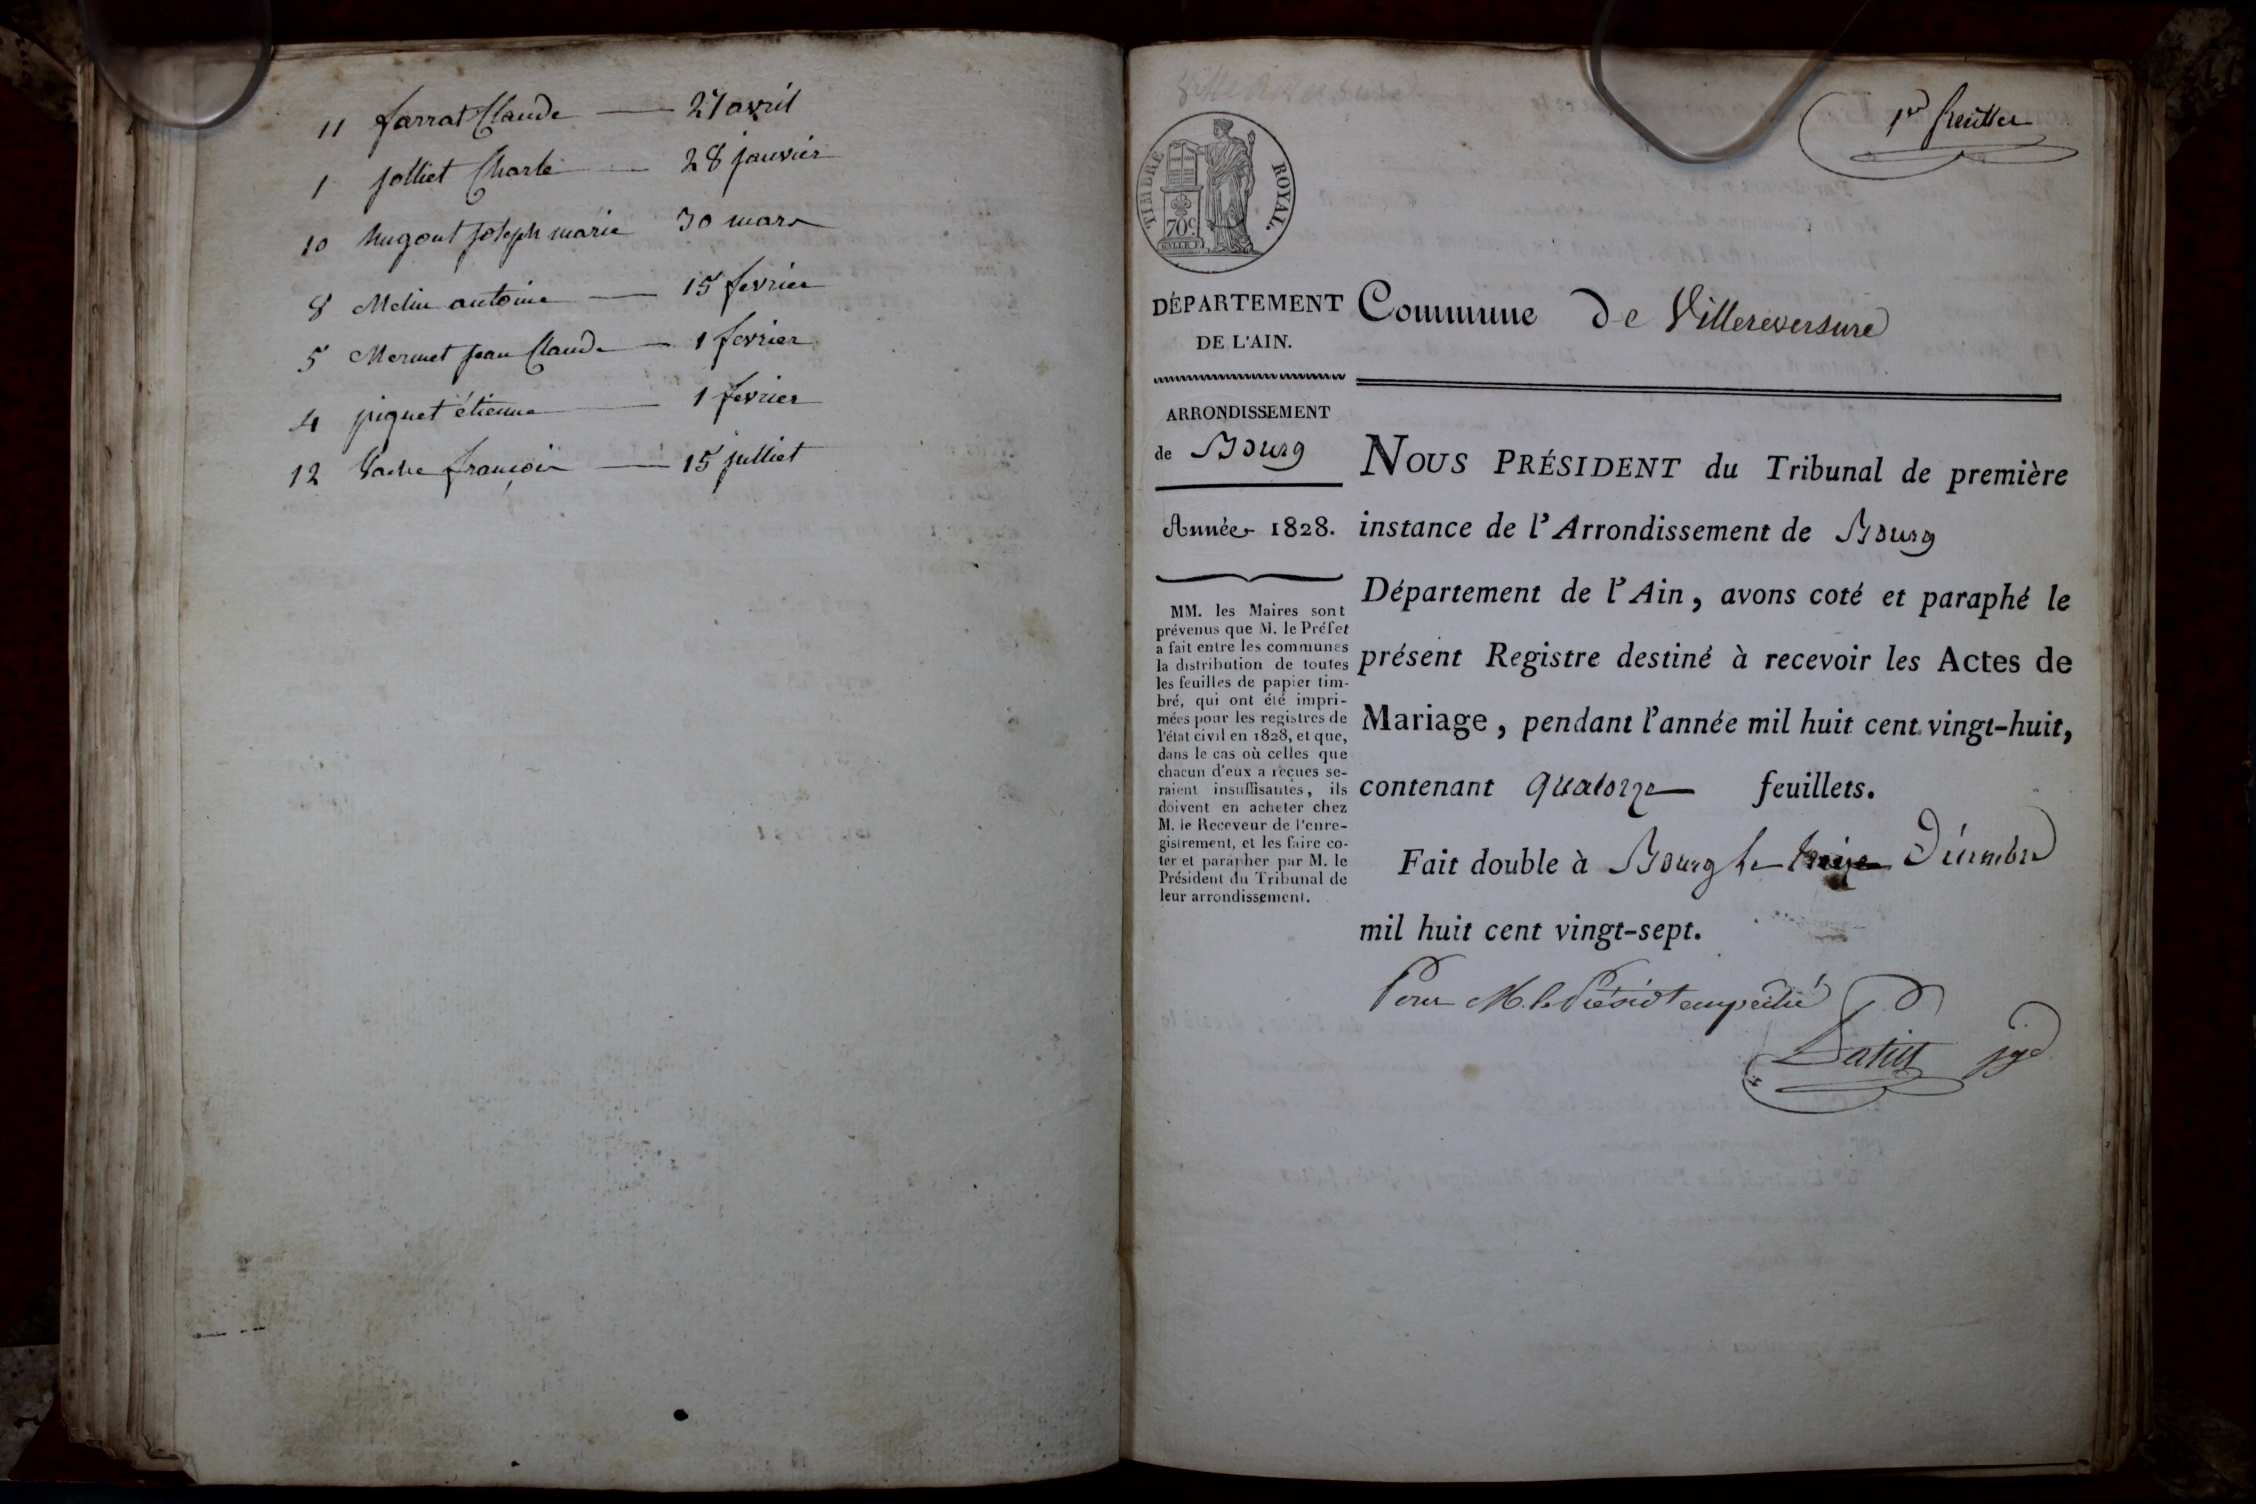 11 farrat Claude — 27 avril
1 jolliet Charle — 28 janvier
10 hugont joseph marie 30 mars
8 Melin antoine — 15 fevrier
5 Mermet jean Claude — 1 fevrier
4 piquet étienne — 1 fevrier
12 Vache françois — 15 julliet
1er feuillet
TIMBRE ROYAL.
70c.
DÉPARTEMENT
DE L'AIN.
ARRONDISSEMENT
de Bourg
Année 1828.
MM. les Maires sont
prévenus que M. le Préfet
a fait entre les communes
la distribution de toutes
les feuilles de papier tim-
bré, qui ont été impri-
mées pour les registres de
l'état civil en 1828, et que,
dans le cas où celles que
chacun d'eux a reçues se-
raient insuffisantes, ils
doivent en acheter chez
M. le Receveur de l'enre-
gistrement, et les faire co-
ter et parapher par M. le
Président du Tribunal de
leur arrondissement.
Commune de Villereversure
NOUS PRÉSIDENT du Tribunal de première
instance de l'Arrondissement de Bourg
Département de l'Ain, avons coté et paraphé le
présent Registre destiné à recevoir les Actes de
Mariage, pendant l'année mil huit cent vingt-huit,
contenant quatorze feuillets.
Fait double à Bourg le treize Décembre
mil huit cent vingt-sept.
Pour M. le Présidt empêché